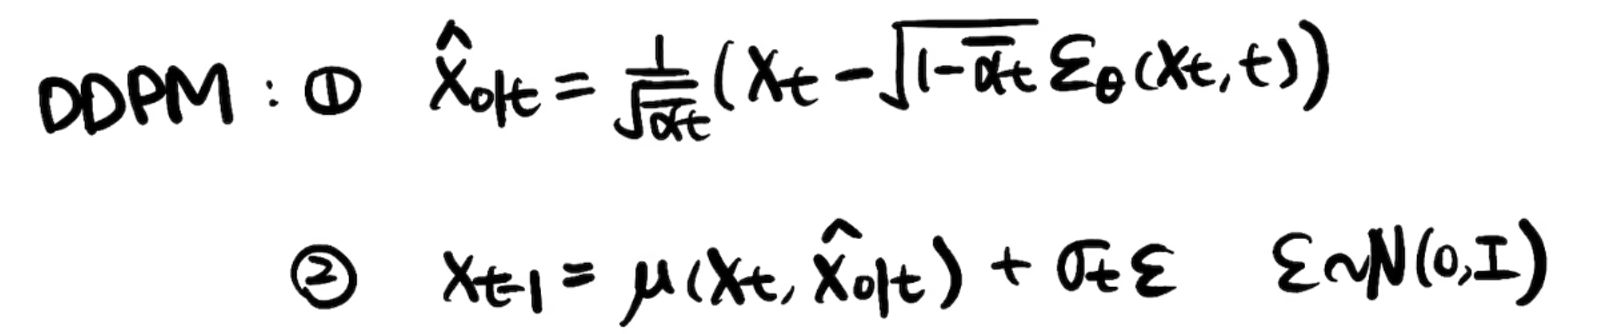 DDPM : ① x̂₀|t = 1/√ᾱt (xt − √(1−ᾱt) εθ(xt, t))
② xt-1 = μ(xt, x̂₀|t) + σt ε   ε∼N(0,I)